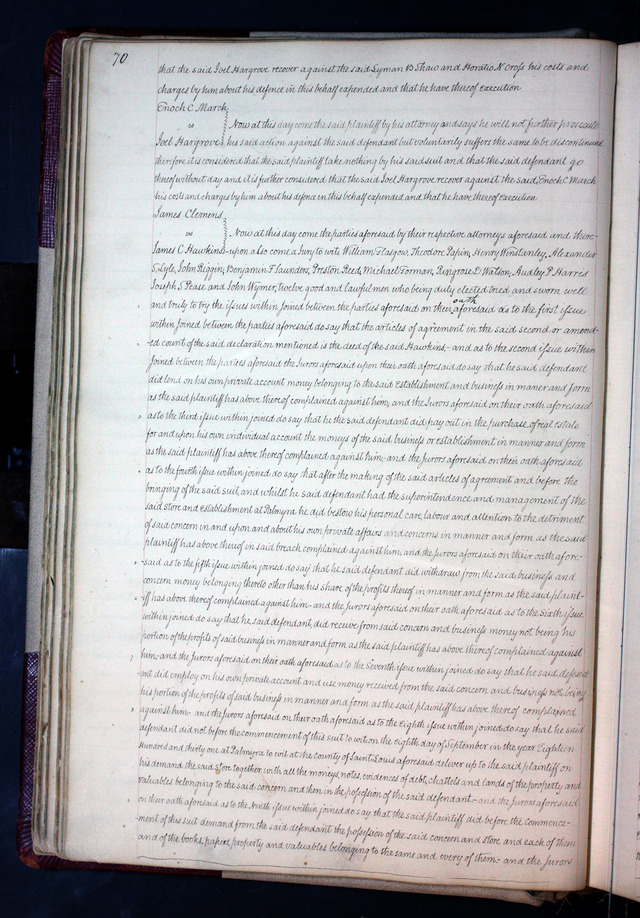 70
that the said Joel Hargrove recover against the said Lyman B Shaw and Horatio N Cross his costs and
charges by him about his defence in this behalf expended and that he have thereof execution
Enoch C March
vs Now at this day come the said plaintiff by his attorney and says he will not further prosecute
Joel Hargrove his said action against the said defendant but voluntarily suffers the same to be discontinued
therefore it is considered that the said plaintiff take nothing by his said suit and that the said defendant go
thereof without day and it is further considered that the said Joel Hargrove recover against the said Enoch C March
his costs and charges by him about his defence in this behalf expended and that he have thereof execution
James Clemens
vs Now at this day come the parties aforesaid by their respective attorneys aforesaid and there-
James C Hawkins -upon also come a Jury to wit; William Glasgow, Theodore Papin, Henry Winstanley, Alexander
S. Lyle, John Riggin, Benjamin F Saunders, Preston Reed, Michael Forman, Ringrose D. Watson, Audley P Harris
Joseph S Pease and John Wymer, twelve good and lawful men who being duly elected tried and sworn well
and truly to try the issues within joined between the parties aforesaid on their oath aforesaid as to the first issue
within joined between the parties aforesaid do say that the articles of agreement in the said second or amend-
ed count of the said declaration mentioned is the deed of the said Hawkins - and as to the second issue within
joined between the parties aforesaid the Jurors aforesaid upon their oath aforesaid do say that he said defendant
did lend on his own private account money belonging to the said establishment and business in maner and form
as the said plaintiff has above thereof complained against him; and the Jurors aforesaid on their oath aforesaid
as to the third issue within joined do say that he the said defendant did pay out in the purchase of real estate
for and upon his own individual account the moneys of the said business or establishment in manner and form
as the said plaintiff has above thereof complained against him; and the Jurors aforesaid on their oath aforesaid
as to the fourth issue within joined do say that after the making of the said articles of agreement and before the
bringing of the said suit, and whilst he said defendant had the superintendence and management of the
said store and establishment at Palmyra he did bestow his personal care, labour and attention to the detriment
of said concern in and upon and about his own private affairs and concerns in manner and form as the said
plaintiff has above thereof in said breach complained against him, and the Jurors aforesaid on their oath afore-
-said as to the fifth issue within joined do say that he said defendant did withdraw from the said business and
concern money belonging thereto other than his share of the profits thereof in manner and form as the said plaint-
iff has above thereof complained against him - and the Jurors aforesaid on their oath aforesaid as to the Sixth issue
within joined do say that he said defendant, did receive from said concern and business money not being his
portion of the profits of said business in manner and form as the said plaintiff has above thereof complained against
him; and the Jurors aforesaid on their oath aforesaid as to the Seventh issue within joined do say that he said defend
ant did employ on his own private account and use money received from the said concern and business not being
his portion of the profits of said business in manner and form as the said plaintiff has above thereof complained
against him - and the Jurors aforesaid on their oath aforesaid as to the Eighth issue within joined do say that he said
defendant did not before the commencement of this suit to wit on the eighth day of September in the year Eighteen
Hundred and thirty one at Palmyra to wit at the county of Saint Louis aforesaid deliver up to the said plaintiff on
his demand the said store together with all the moneys, notes, evidences of debt, chattels and lands of the property and
valuables belonging to the said concern and then in the possession of the said defendant - and the Jurors aforesaid
on their oath aforesaid as to the Ninth issue within joined do say that the said plaintiff did before the commence-
ment of this suit demand from the said defendant the possession of the said concern and store and each of them
and of the books, papers, property and valuables belonging to the same and every of them - and the Jurors